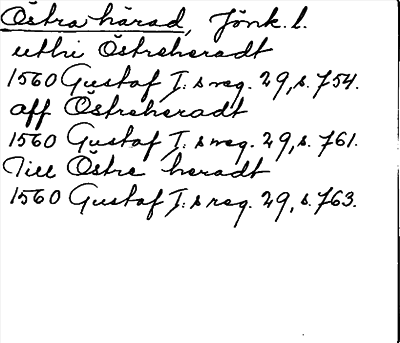 Östra härad, Jönk. l.
uthi Östreheradt
1560 Gustaf I:s reg. 29, s. 754.
aff Östreheradt
1560 Gustaf I:s reg. 29, s. 761.
Till Östre heradt
1560 Gustaf I:s reg. 29, s. 763.